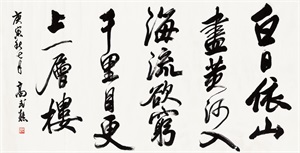 白日依山
盡黄河入
海流欲窮
千里目更
上一層樓
庚寅秋七月